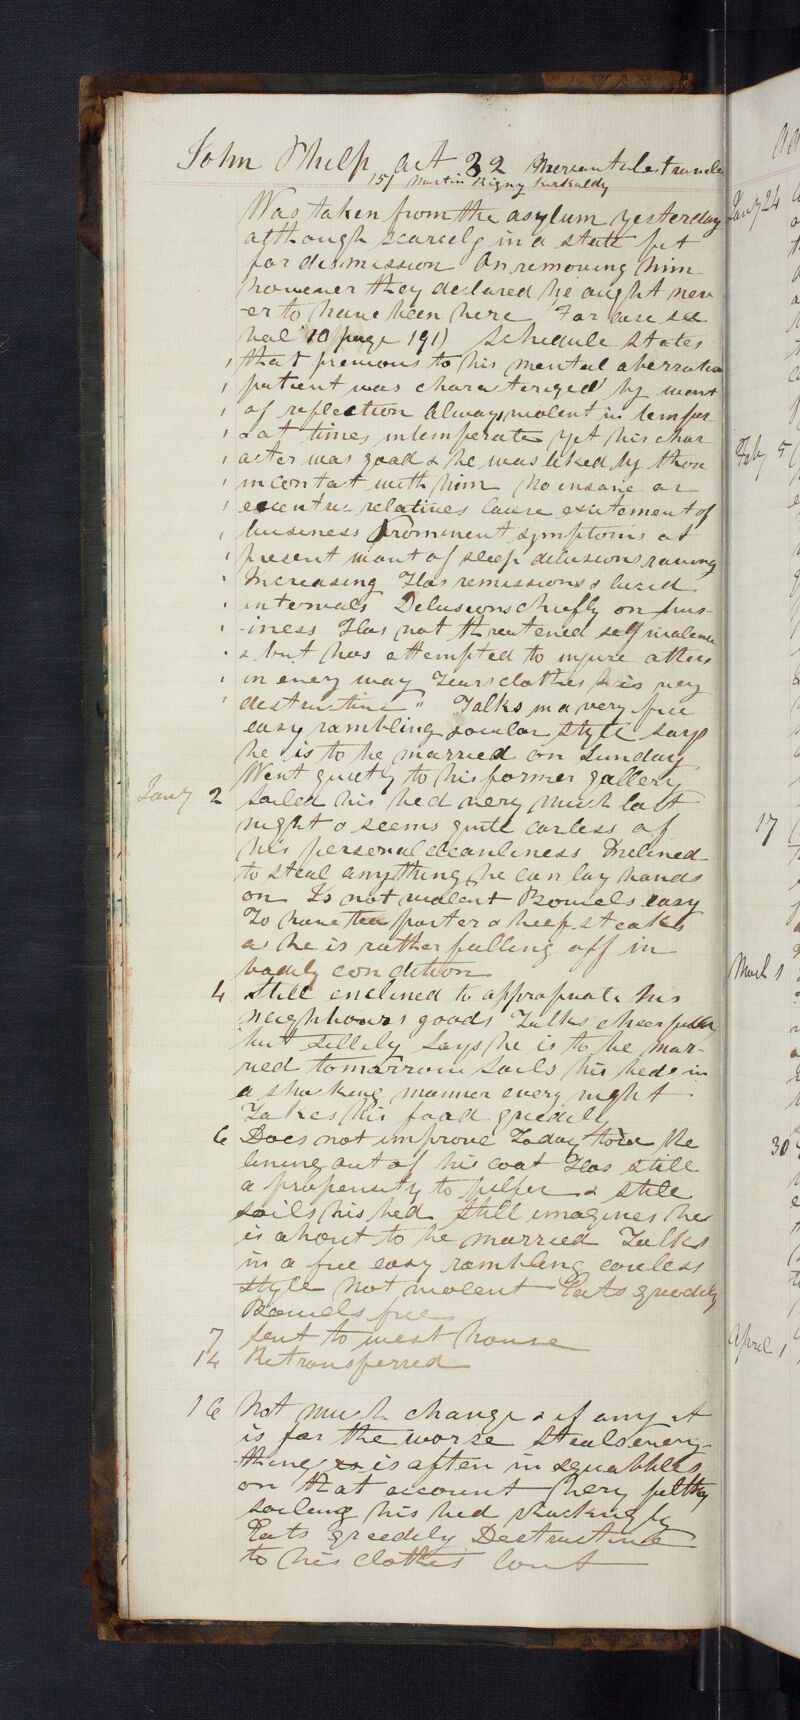 John Philp aet 32 Mercantile travele
151 Martin Rigny Kirkcaldy
Was taken from the asylum yesterday
although scarcely in a state fit
for dismission On removing him
however they declared he ought nev
-er to have been here For case see
vol 10 page 191) Schedule states
that previous to his mental aberration
patient was characterized by want
of reflection Always violent in temper
& at times intemperate yet his char
acter was good & he was liked by those
in contact with him No insane or
eccentric relatives Cause excitement of
business Prominent symptoms at
present want of sleep delusions raving
Increasing Has remissions & lucid
intervals Delusions chiefly on bus-
-iness Has not threatened self violence
& but has attempted to injure others
in every way Tears clothes & is very
destructive" Talks in a very free
easy rambling jocular style says
he is to be married on Sunday
Went quietly to his former gallery
Jany 2 Soiled his bed very much last
night & seems quite careless of
his personal cleanliness Inclined
to steal anything he can lay hands
on Is not violent Bowels easy
To have tea porter & beef steaks
as he is rather falling off in
bodily condition
4 Still enclined to appropriate his
neighbours goods Talks cheerfully
but sillily Says he is to be mar-
ried tomorrow Soils his beds in
a shocking manner every night
Takes his food greedily
6 Does not improve Today tore the
lining out of his coat Has still
a propensity to pilfer & still
soils his bed Still imagines he
is about to be married Talks
in a free easy rambling careless
style Not violent Eats greedily
Bowels free
7 Sent to west house
14 Retransferred
16 Not much change & if any it
is for the worse Steals every-
-thing & is often in squabbles
on that account Very filthy
soiling his bed shockingly
Eats greedily Destructive
to his clothes Cont
Jany 24
Feby 5
17
March 1
30
April 1